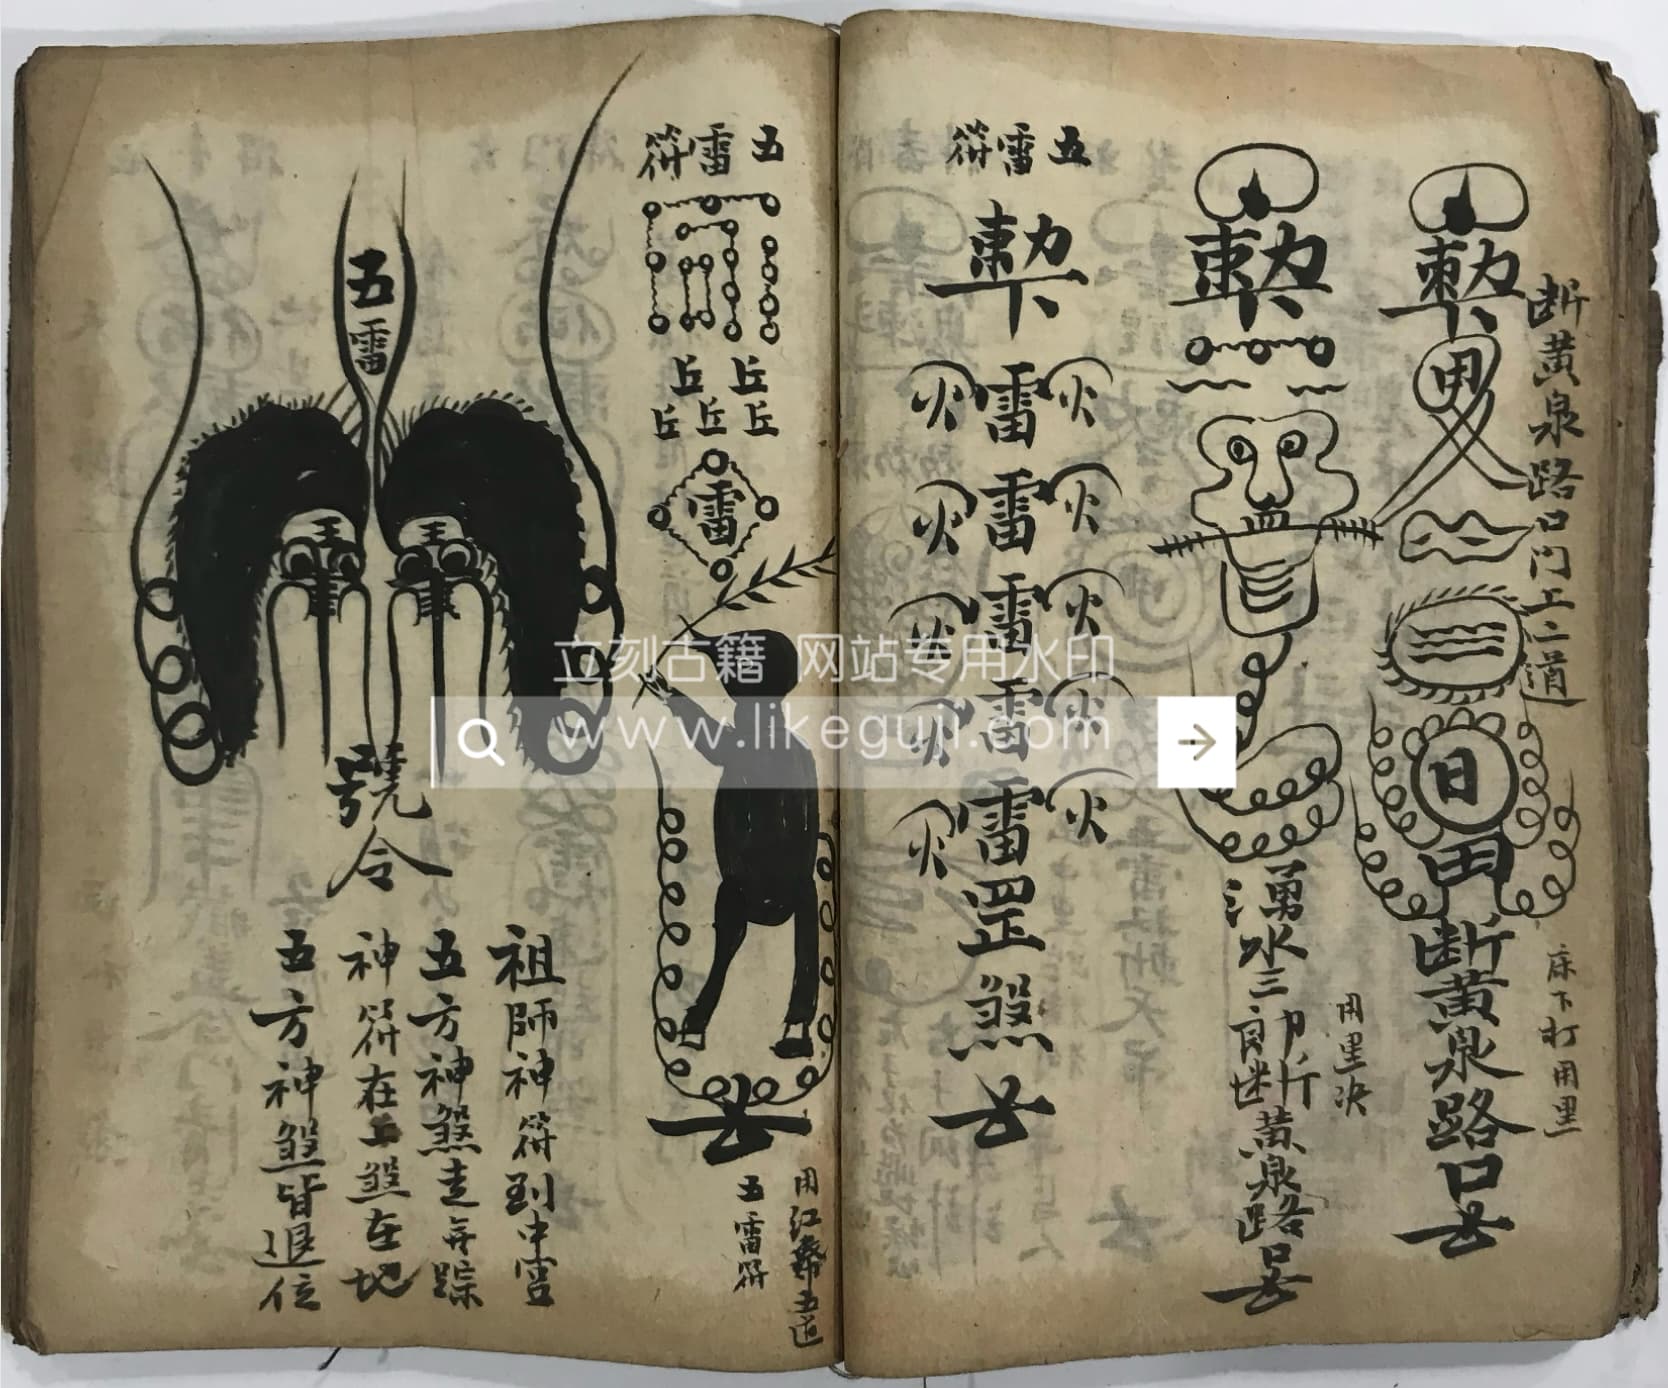 断黄泉路口門上二道
日
断黄泉路口
床下打用里
湧水三郎断黄泉路口
用里决
五雷符
雷火火
雷火火
雷火火
雷火火
雷火火
罡煞
五雷符
丘丘
丘丘丘
雷
五雷符
五雷
號令
祖師神符到中宮
五方神煞走无踪
神符在上煞在地
五方神煞皆退位
立刻古籍 网站专用水印
www.likeguji.com